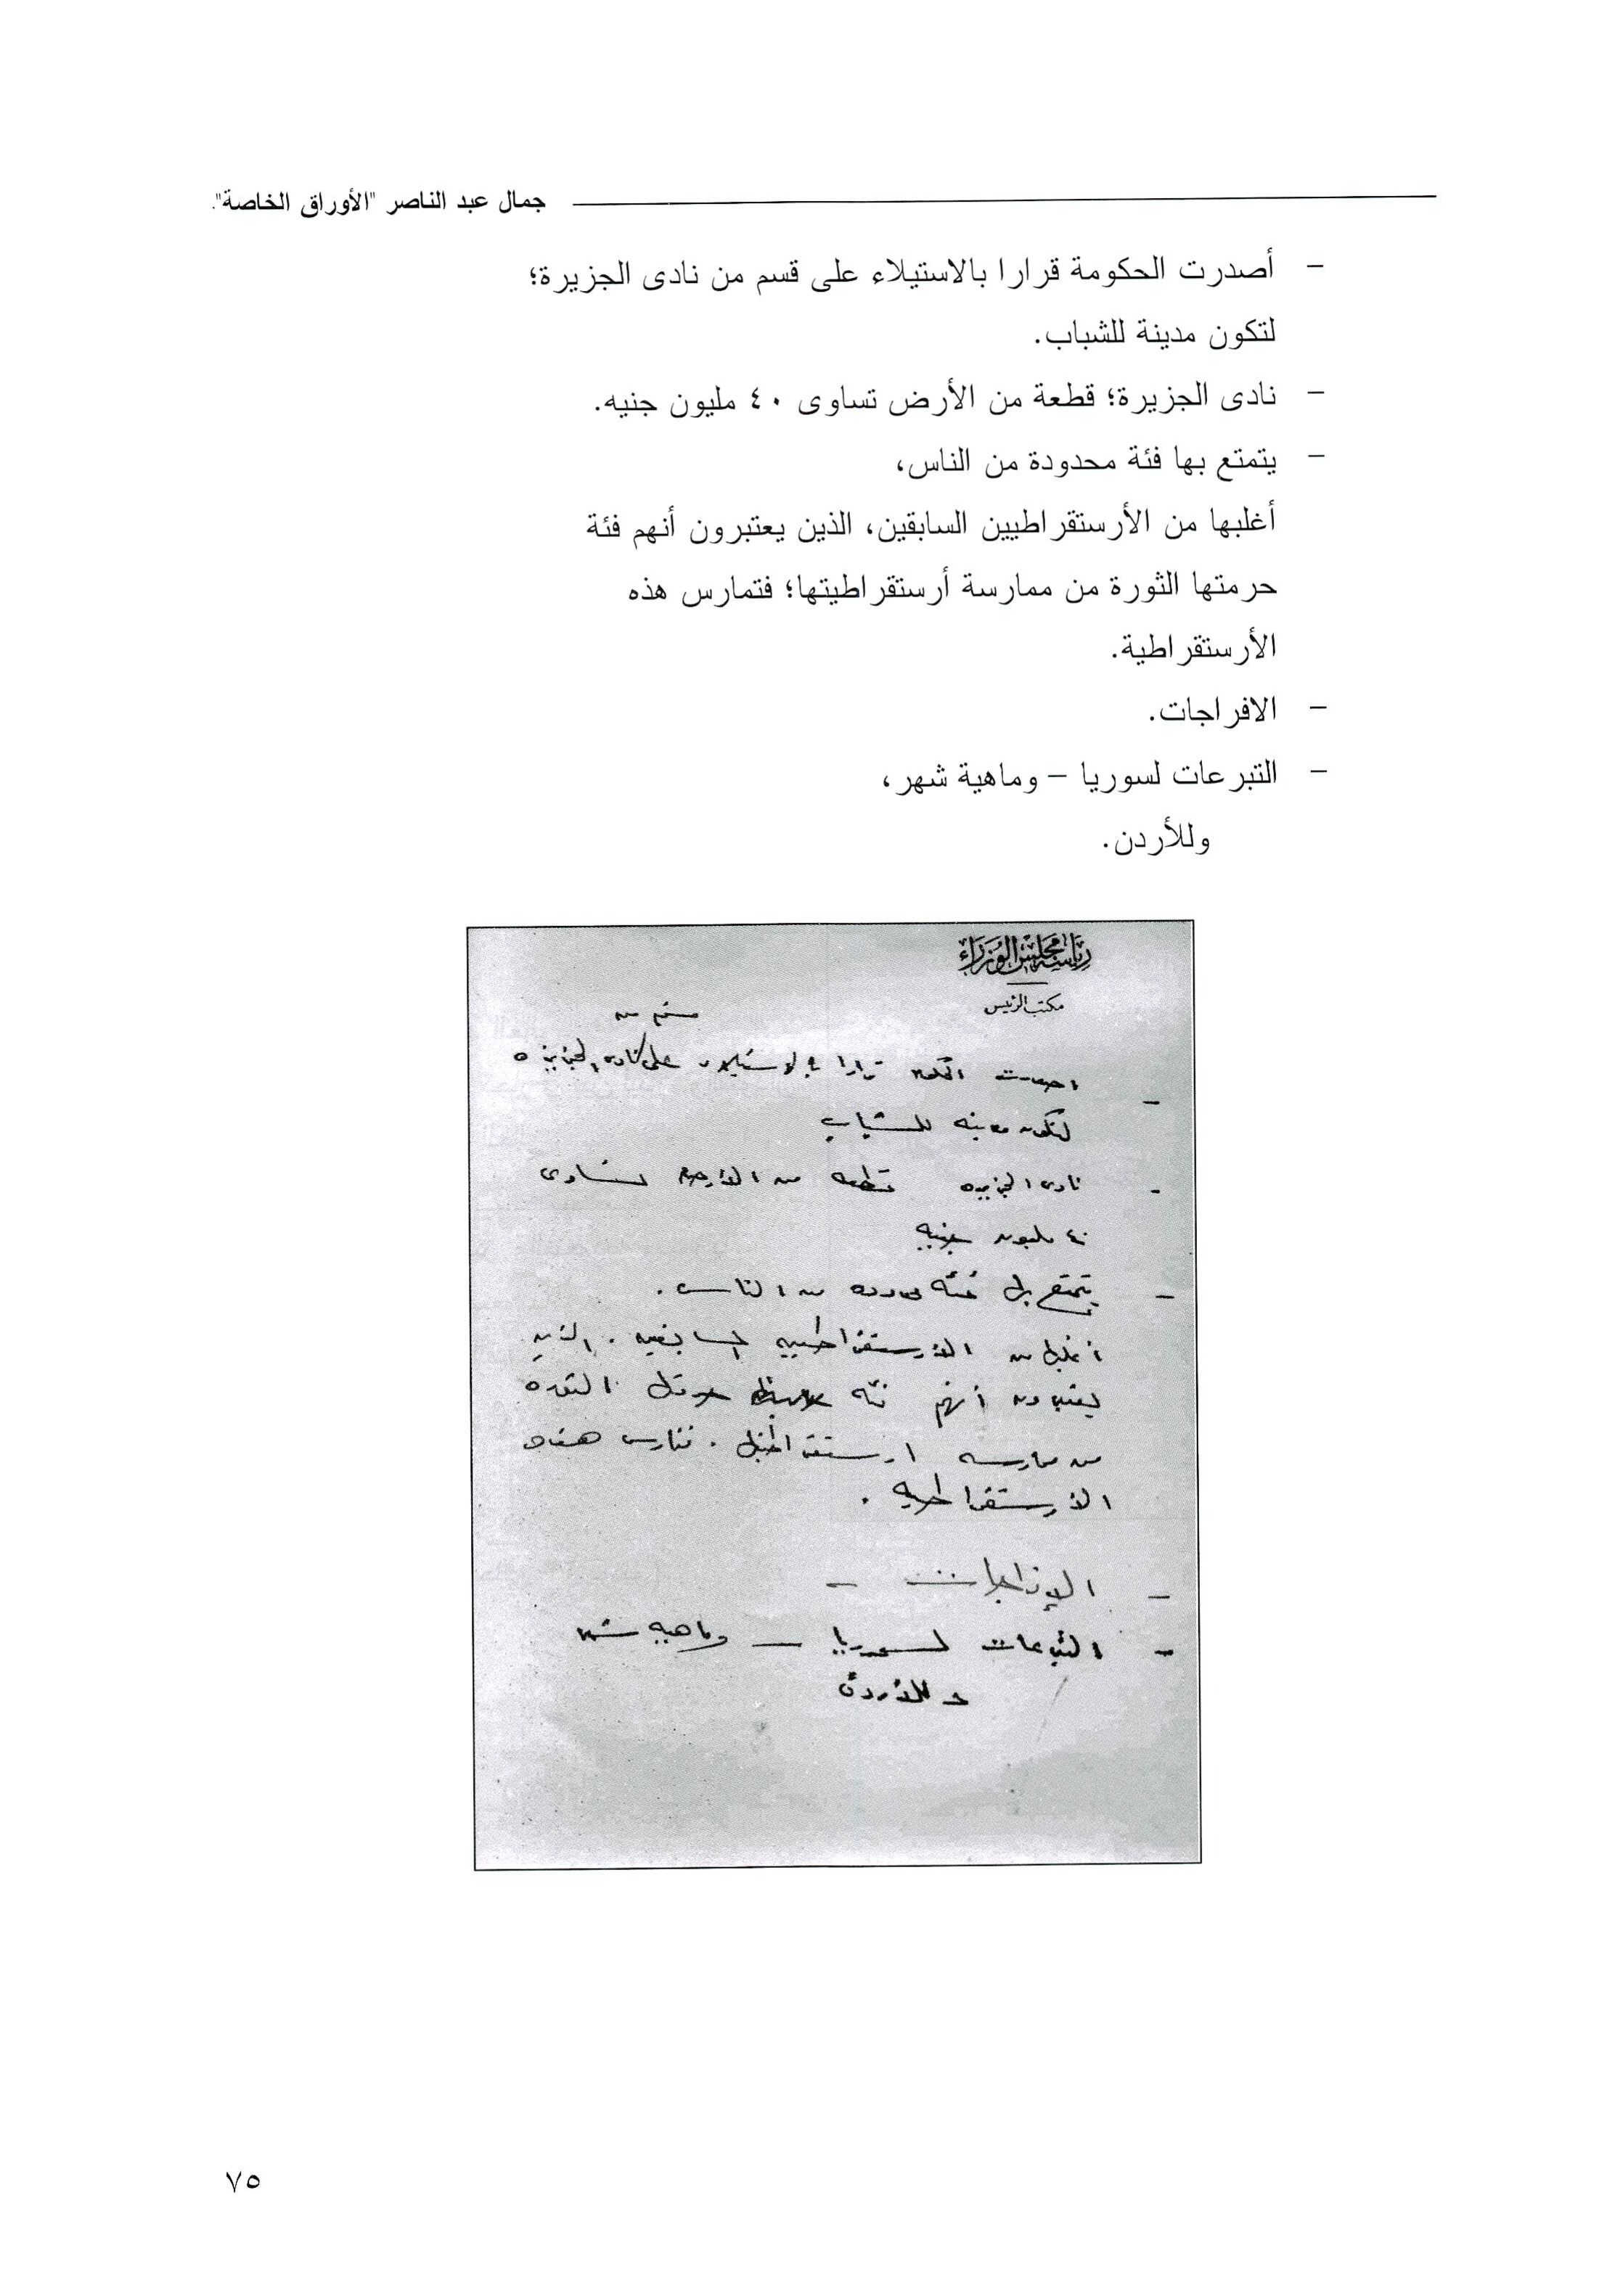 جمال عبد الناصر "الأوراق الخاصة".
– أصدرت الحكومة قرارا بالاستيلاء على قسم من نادى الجزيرة؛
لتكون مدينة للشباب.
– نادى الجزيرة؛ قطعة من الأرض تساوى ٤٠ مليون جنيه.
– يتمتع بها فئة محدودة من الناس،
أغلبها من الأرستقراطيين السابقين، الذين يعتبرون أنهم فئة
حرمتها الثورة من ممارسة أرستقراطيتها؛ فتمارس هذه
الأرستقراطية.
– الافراجات.
– التبرعات لسوريا – وماهية شهر،
وللأردن.
رياسة مجلس الوزراء
مكتب الرئيس
قسم من
– اصدرت الحكومه قرارا بالاستيلاء على نادى الجزيره
لتكون مدينه للشباب
- نادى الجزيره قطعه من الأرض تساوى
٤٠ مليون جنيه
– يتمتع بها فئه محدوده من الناس .
أغلبها من الأرستقراطيين السابقين . الذين
يعتبرون أنهم فئه حرمتها الثوره
من ممارسه ارستقراطيتها . فتمارس هذه
الأرستقراطيه .
– الإفراجات –
– التبرعات لسوريا — وماهيه شهر
و للأردن
٧٥